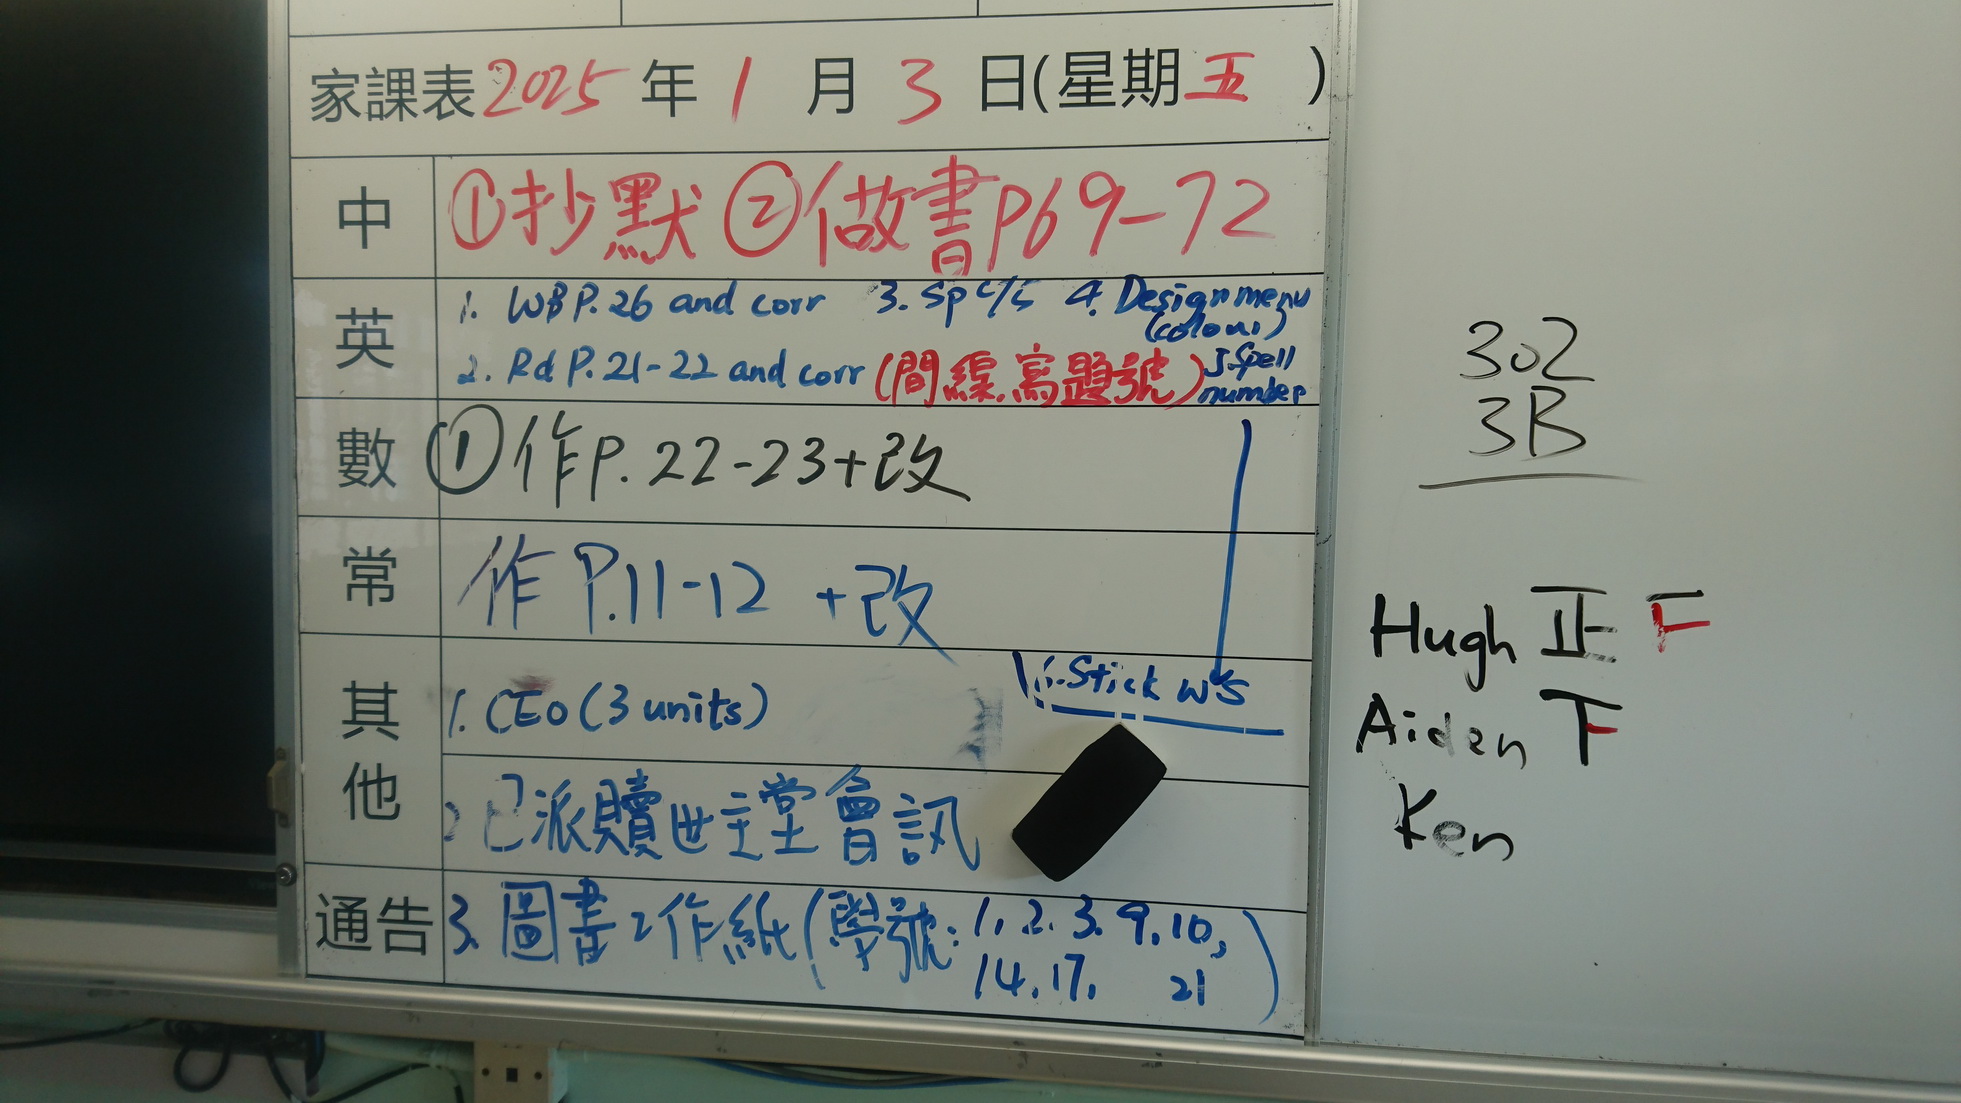 家課表2025年1月3日(星期五)
中 ①抄默 ②做書P69-72
英 1. WB P.26 and corr 3. Sp c/s 4. Design menu
(colour)
2. Rd P.21-22 and corr (間線.寫題號) 5.Spell
number
數 ①作P.22-23+改
常 作 P.11-12 +改
6.Stick ws
其他 1. CEO (3 units)
2 已派贖世主堂會訊
通告 3. 圖書工作紙(學號:1,2.3.9,10,
14.17. 21)
302
3B
Hugh 正
Aiden
Ken